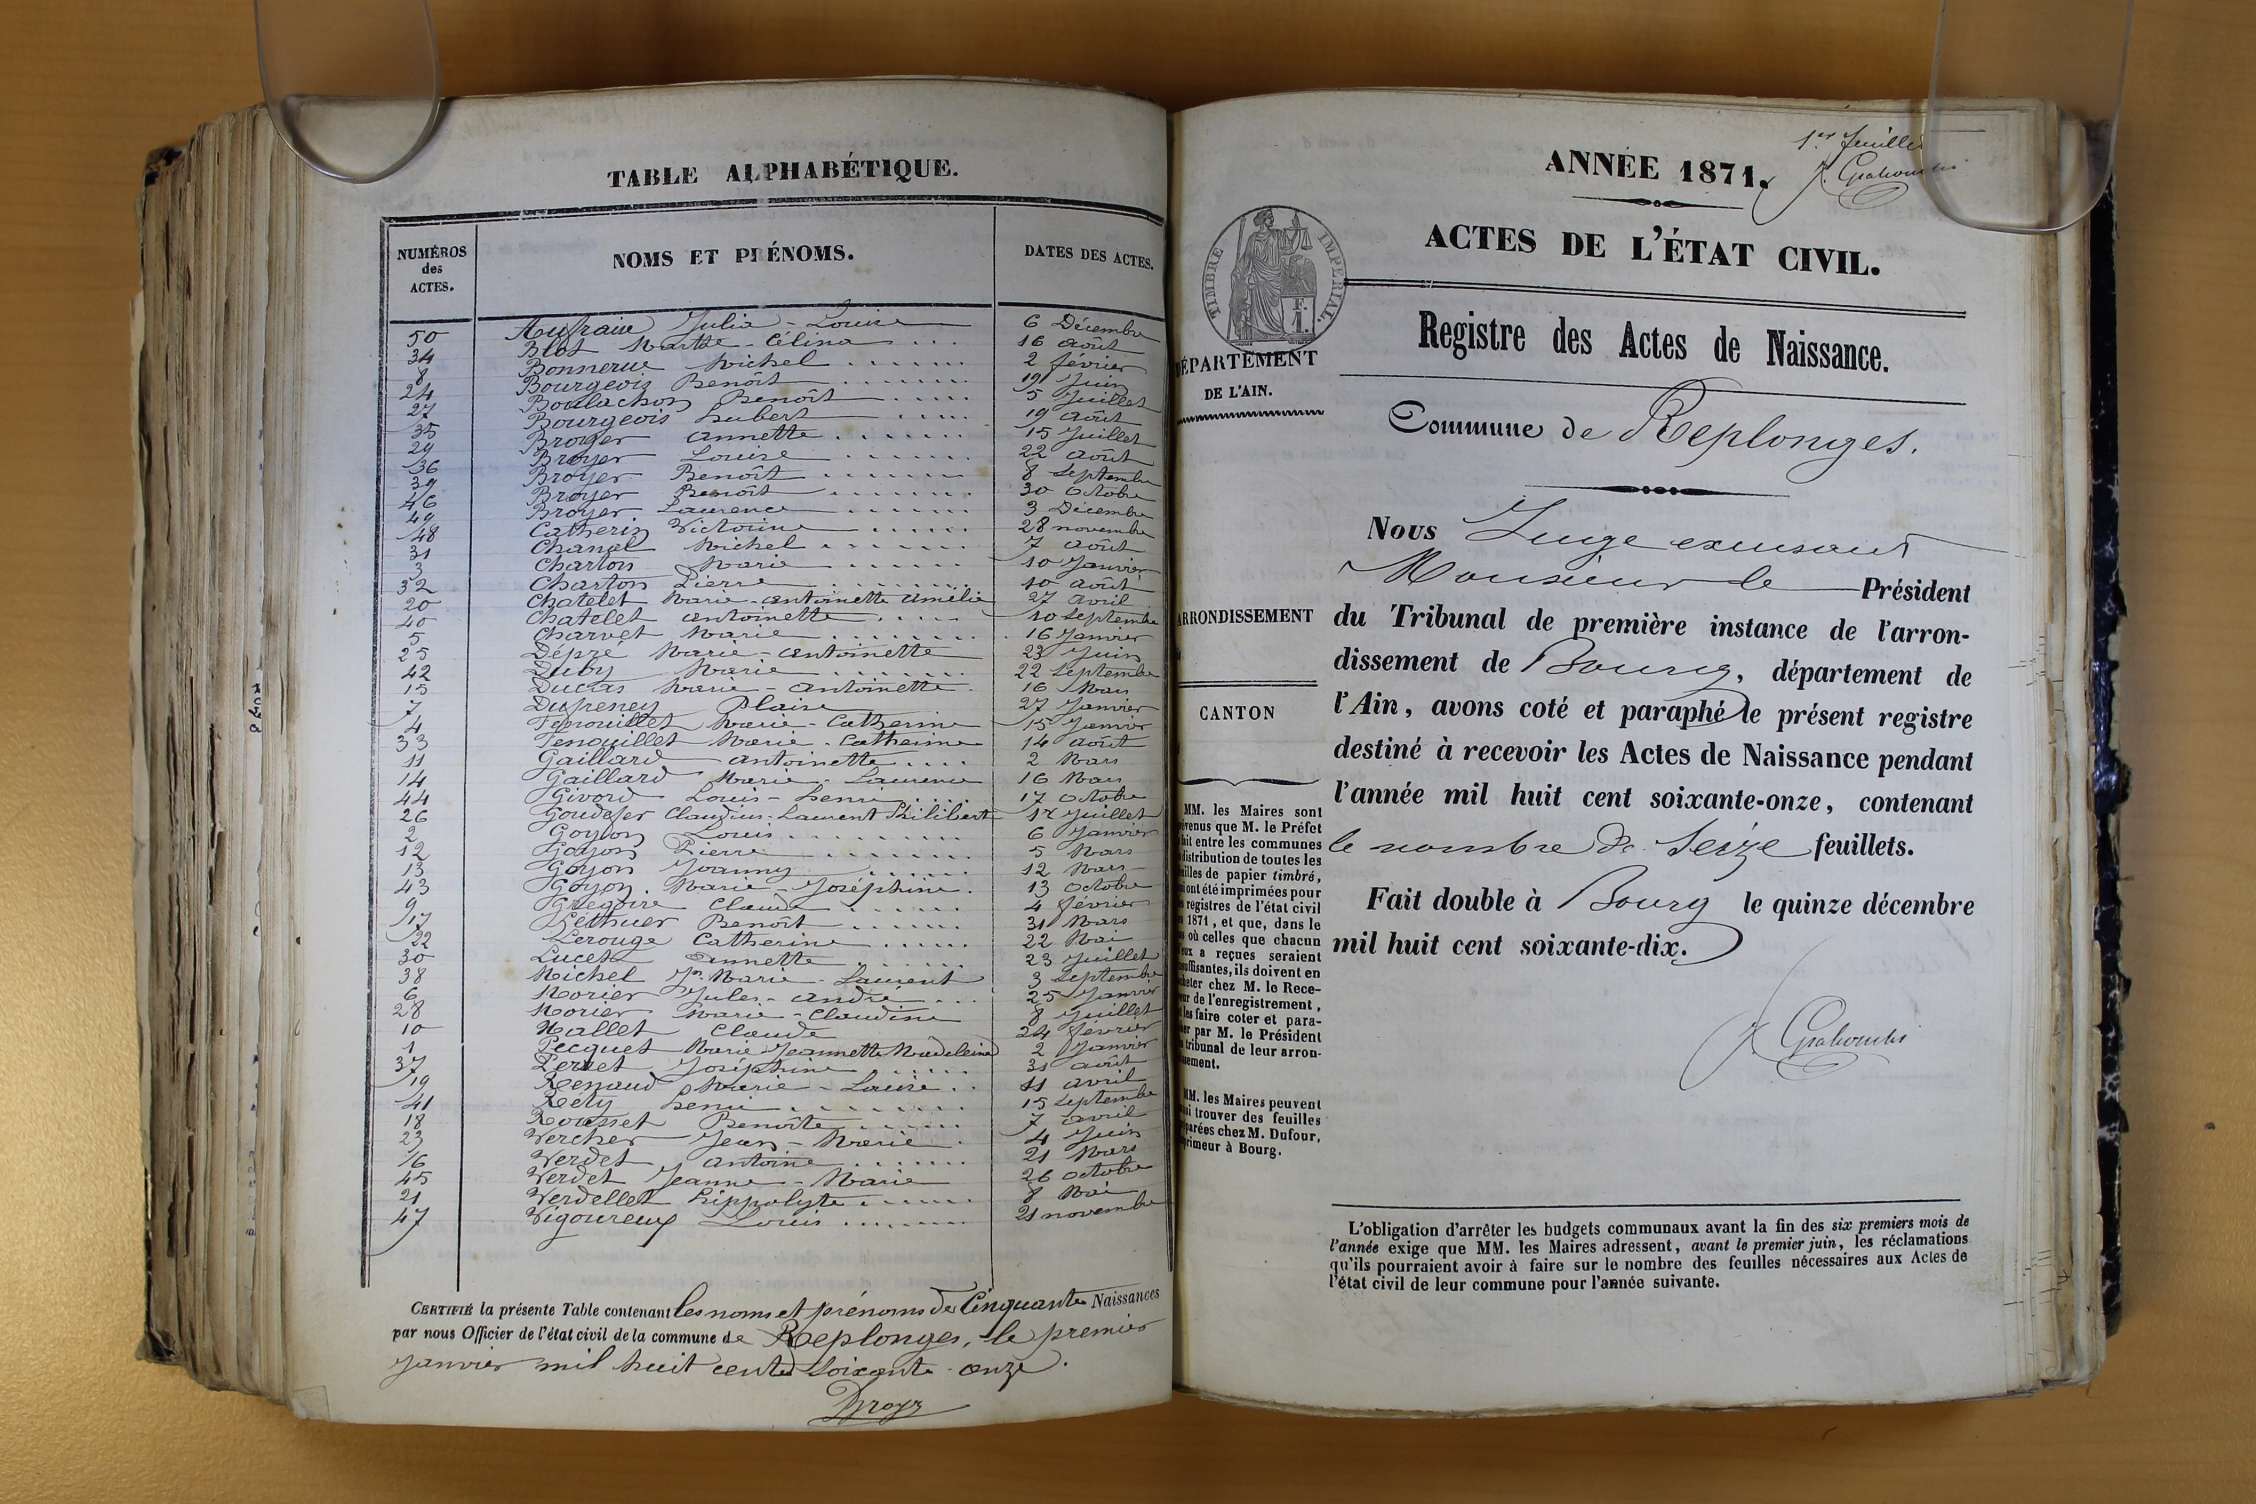 TABLE ALPHABÉTIQUE.
NUMÉROS des ACTES.
NOMS ET PRÉNOMS.
DATES DES ACTES.
50 Julia - Louise 6 Décembre
34 Blot Marthe - Célina 16 août
8 Bonnerue Michel 2 février
24 Bourgeois Benoît 19 Juin
27 Boulachon Benoît 5 Juillet
35 Bourgeois hubert 19 août
29 Broyer annette 15 Juillet
36 Broyer Louise 22 août
39 Broyer Benoît 8 Septembre
46 Broyer Benoît 30 Octobre
49 Broyer Laurence 3 Décembre
48 Catherin Victorine 28 novembre
31 Chanel Michel 7 août
3 Charton Marie 10 Janvier
32 Charton Pierre 10 août
20 Chatelet Marie - antoinette amélie 27 avril
40 Chatelet antoinette 10 Septembre
5 Charvet Marie 16 Janvier
25 Dépré Marie - antoinette 23 Juin
42 Duby Marie 22 Septembre
15 Ducras Marie - antoinette 16 Mars
7 Dupeney Claire 27 Janvier
4 Fenouillet Marie - Catherine 15 Janvier
33 Fenouillet Marie - Catherine 14 août
11 Gaillard antoinette 2 Mars
14 Gaillard Marie - Laurence 16 Mars
44 Givord Louis - henri 17 Octobre
26 Claudius - Laurent Philibert Juillet
2 Goyon Louis 6 Janvier
12 Goyon Pierre 5 Mars
13 Goyon Joanny 12 Mars
43 Goyon Marie - Joséphine 13 Octobre
9 Grégoire Claude 4 février
17 Léthuer Benoît 31 Mars
22 Lerouge Catherine 22 Mai
30 Lucet annette 23 Juillet
38 Michel Jn Marie - Laurent 3 Septembre
6 Morier Jules - andré 25 Janvier
28 Morier Marie - Claudine 8 Juillet
10 Nallet Claude 24 février
1 Pecquet Marie Jeannette Madeleine 2 Janvier
37 Perret Joséphine 31 août
19 Renaud Marie - Louise 11 avril
41 Réty henri 15 Septembre
18 Rousset Benoîte 7 avril
23 Vercher Jean - Marie 4 Juin
16 Verdet antoine 21 Mars
45 Verdet Jeanne - Marie 26 Octobre
21 Verdellet hippolyte 8 Mai
47 Vigoureux Louis 21 novembre
CERTIFIÉ la présente Table contenant les noms et prénoms de Cinquante Naissances
par nous Officier de l'état civil de la commune de Replonges, le premier
Janvier mil huit cent soixante - onze.
1er feuillet
ANNÉE 1871.
ACTES DE L'ÉTAT CIVIL.
TIMBRE IMPÉRIAL.
Registre des Actes de Naissance.
DÉPARTEMENT
DE L'AIN.
Commune de Replonges.
Nous Juge
Monsieur le Président
ARRONDISSEMENT
du Tribunal de première instance de l'arron-
dissement de Bourg, département de
CANTON
l'Ain, avons coté et paraphé le présent registre
destiné à recevoir les Actes de Naissance pendant
l'année mil huit cent soixante-onze, contenant
le nombre de Seize feuillets.
Fait double à Bourg le quinze décembre
mil huit cent soixante-dix.
MM. les Maires sont
que M. le Préfet
entre les communes
distribution de toutes les
de papier timbré,
ont été imprimées pour
registres de l'état civil
1871, et que, dans le
où celles que chacun
a reçues seraient
ils doivent en
chez M. le Rece-
de l'enregistrement,
les faire coter et para-
par M. le Président
tribunal de leur arron-
MM. les Maires peuvent
trouver des feuilles
chez M. Dufour,
à Bourg.
L'obligation d'arrêter les budgets communaux avant la fin des six premiers mois de
l'année exige que MM. les Maires adressent, avant le premier juin, les réclamations
qu'ils pourraient avoir à faire sur le nombre des feuilles nécessaires aux Actes de
l'état civil de leur commune pour l'année suivante.